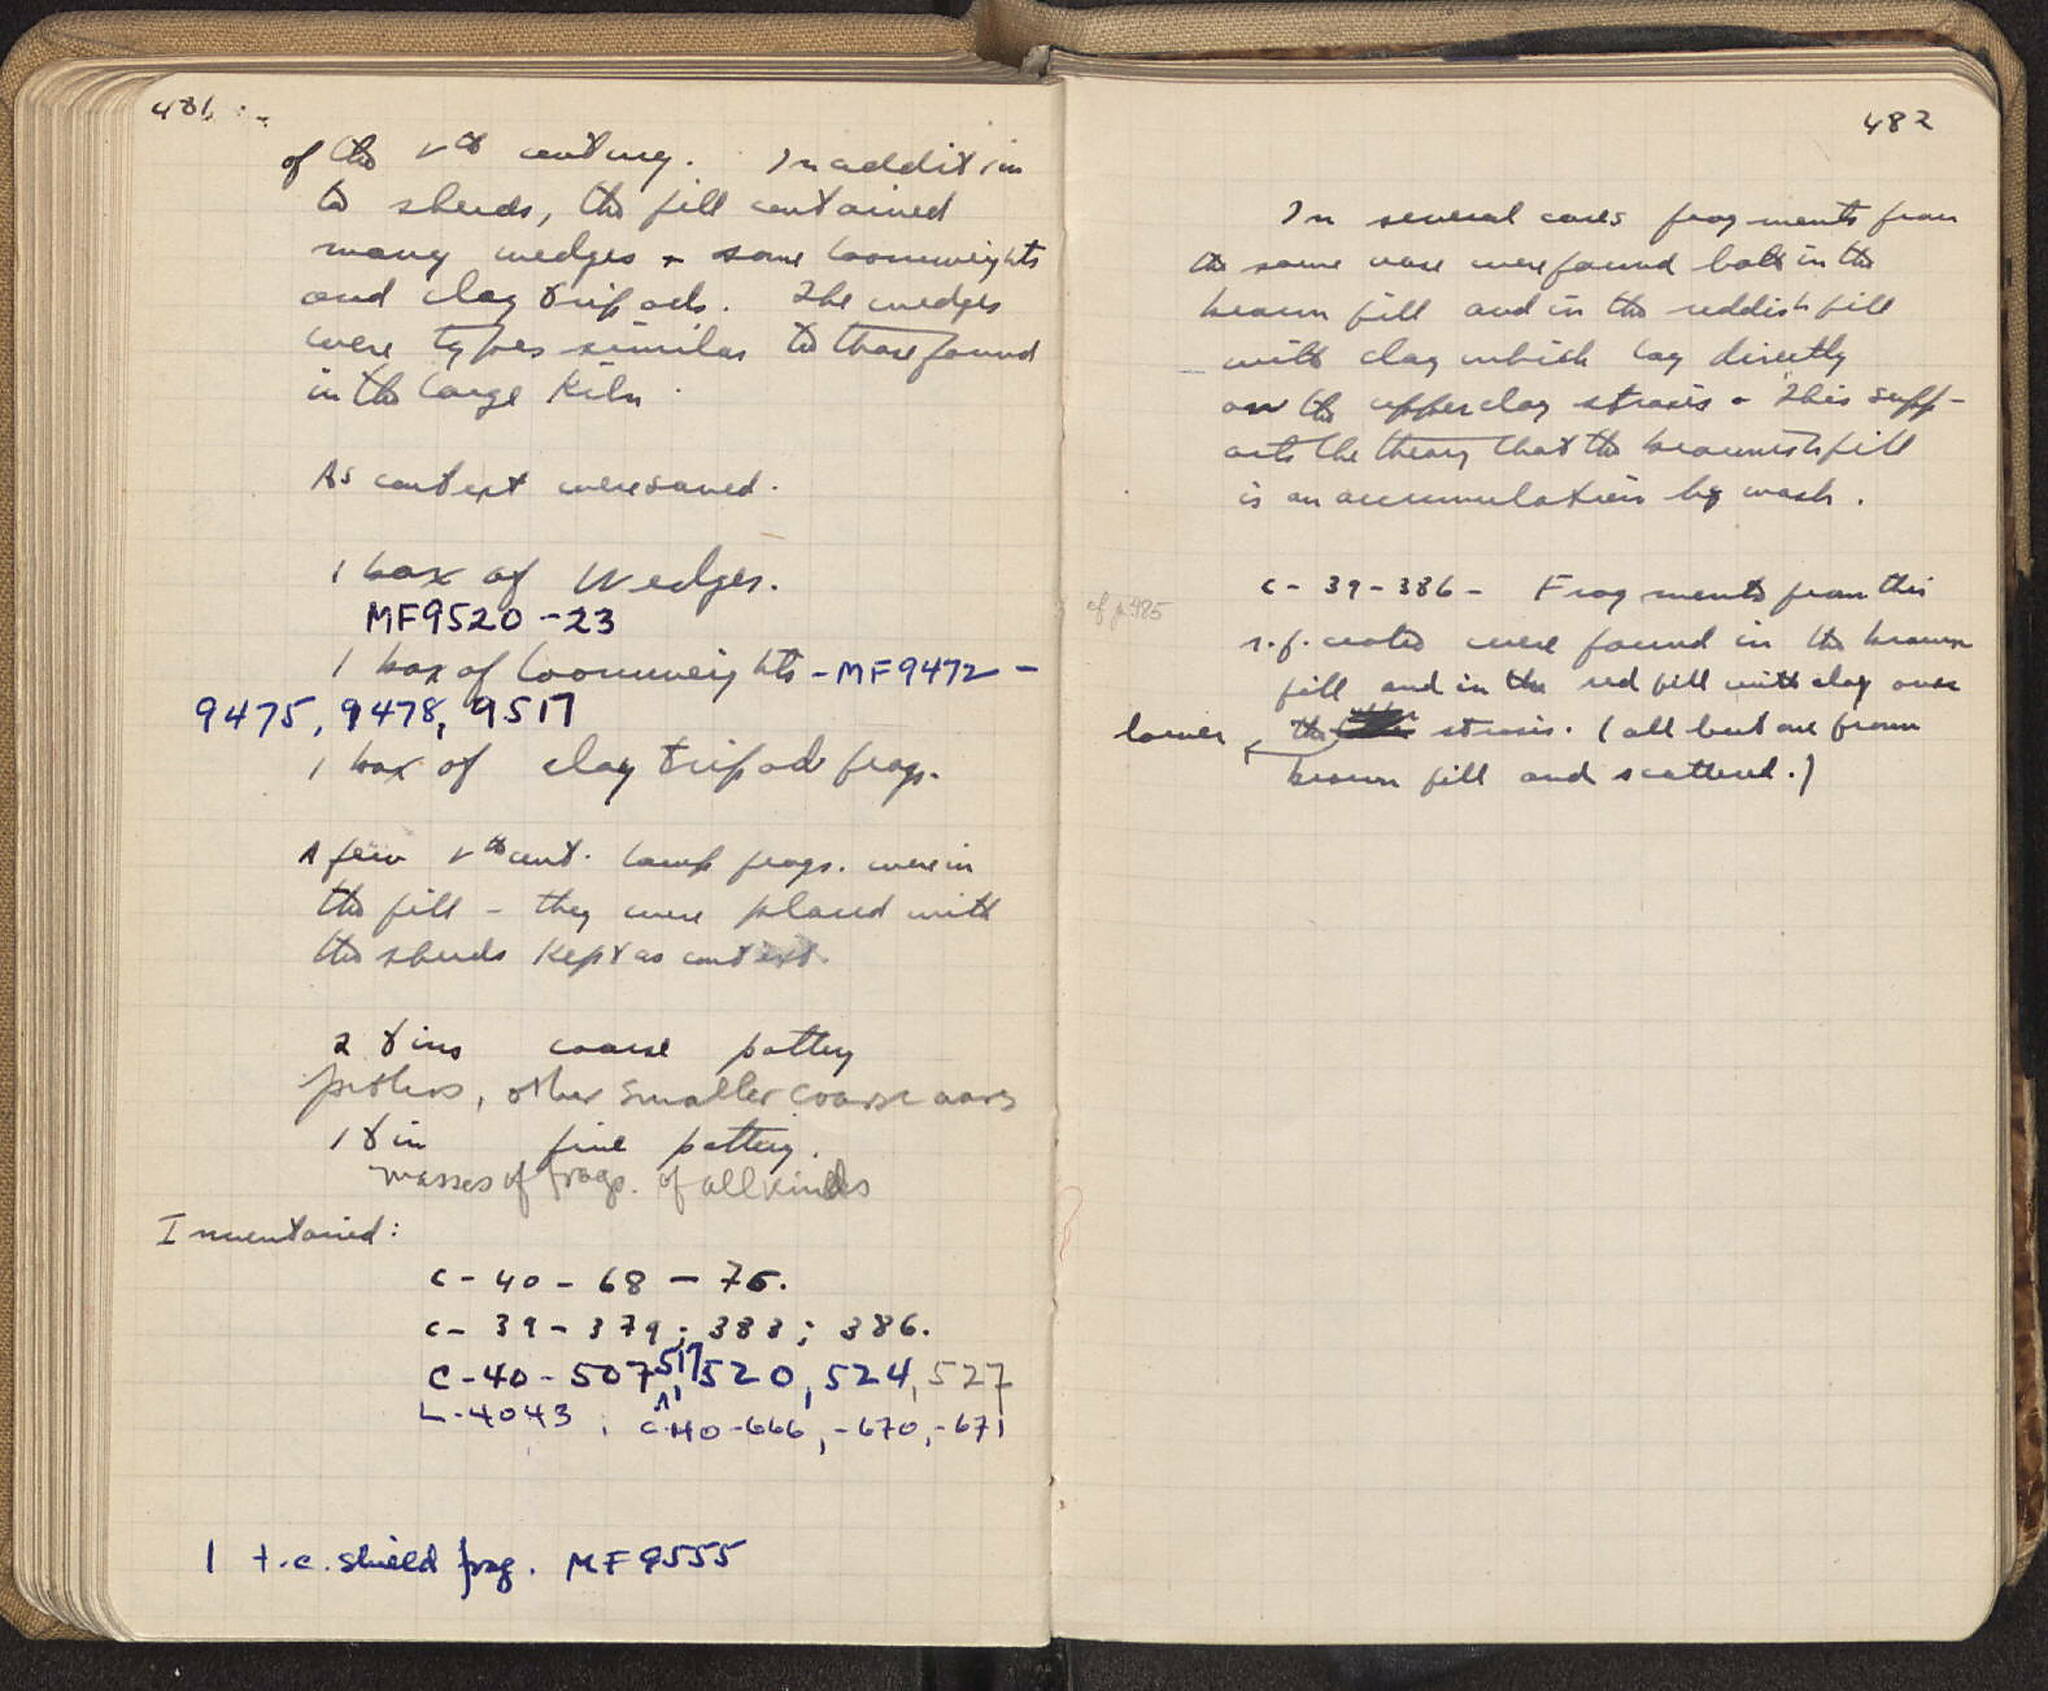 481
of the Vth century. In addition
to sherds, the fill contained
many wedges + some loomweights
and clay tripods. The wedges
were types similar to those found
in the large Kiln.
As context were saved.
1 box of Wedges.
MF9520-23
1 box of loomweights - MF9472 -
9475, 9478, 9517
1 box of clay tripod frags.
A few Vth cent. lamp frags. were in
the fill - they were placed with
the sherds kept as context.
2 tins coarse pottery
pithos, other smaller coarse
1 tin fine pottery.
masses of frags. of all kinds
Inventoried:
C-40-68-75.
C-39-379; 383; 386.
C-40-507, 517, 520, 524, 527
L-4043, C-40-666, -670, -671
1 t.c. shield frag. MF9555
482
In several cases fragments from
the same vase were found both in the
brown fill and in the reddish fill
with clay which lay directly
on the upper clay strosis. This supp-
orts the theory that the brownish fill
is an accumulation by wash.
cf p. 485
C-39-386- Fragments from this
r.f. crater were found in the brown
fill and in the red fill with clay over
lower the strosis. (all but one from
brown fill and scattered.)